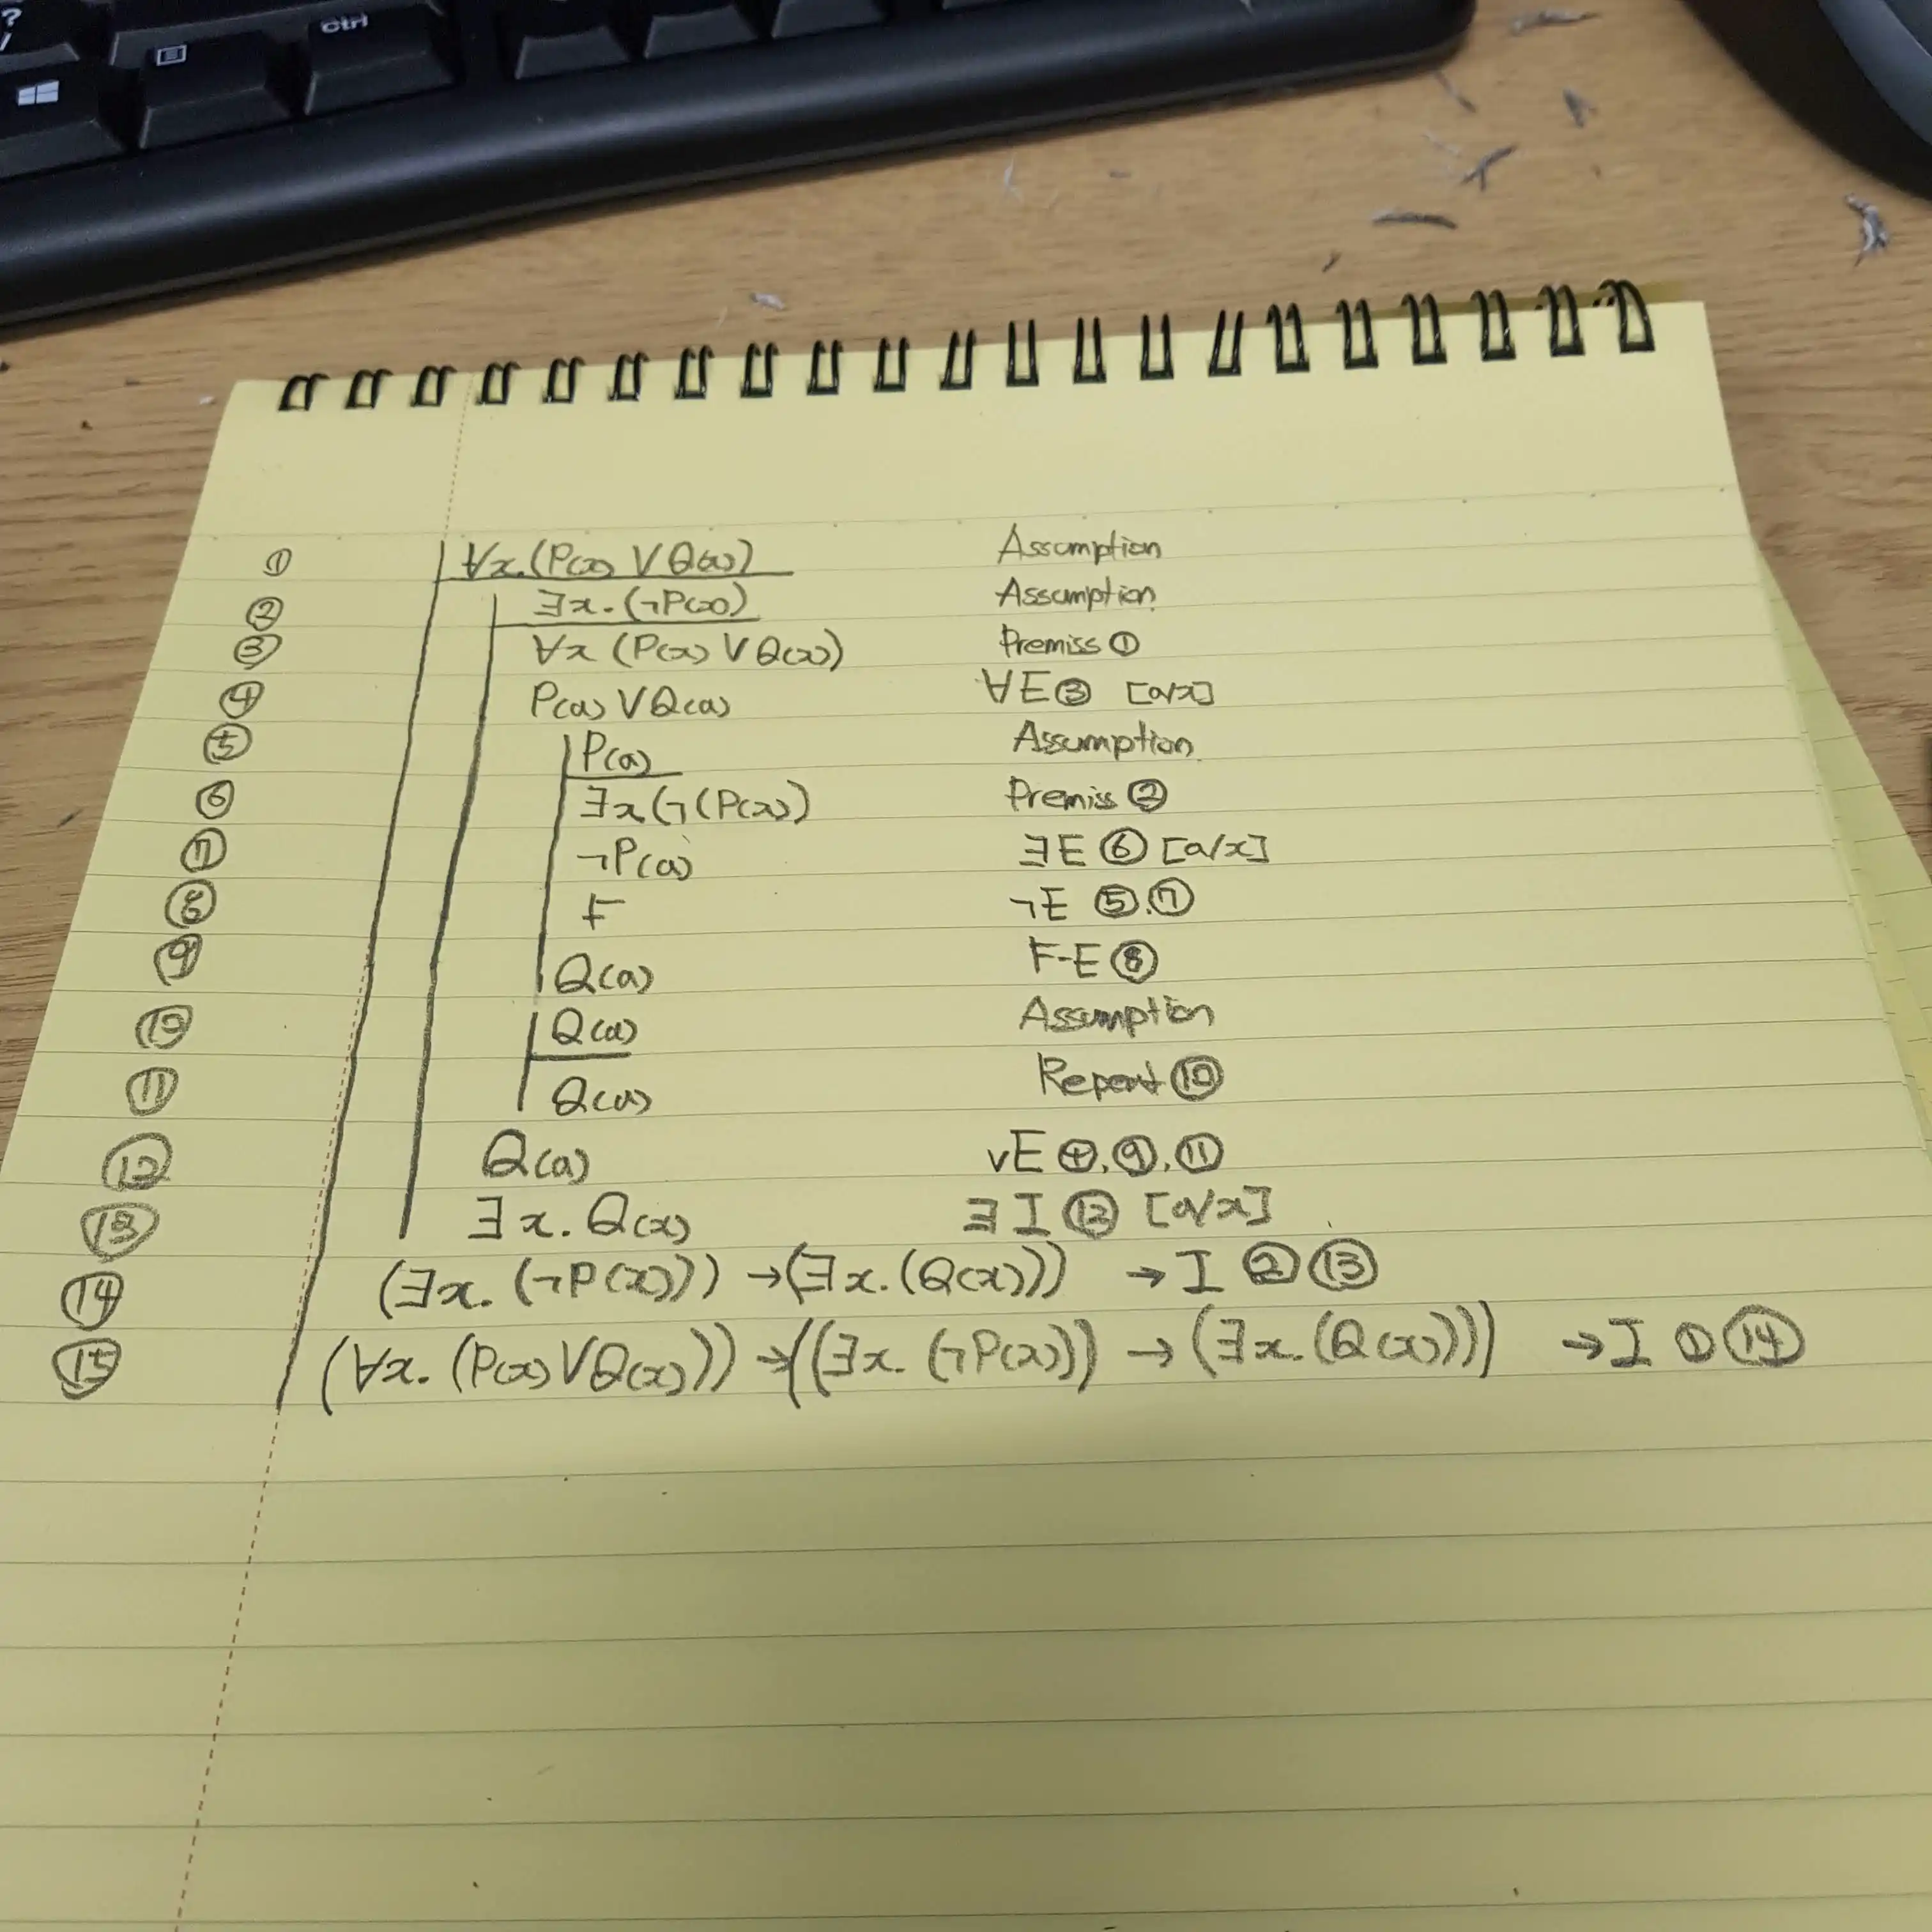 ?
/
Ctrl
① ∀x.(P(x) ∨ Q(x)) Assumption
② ∃x.(¬P(x)) Assumption
③ ∀x (P(x) ∨ Q(x)) Premiss ①
④ P(a) ∨ Q(a) ∀E ③ [a/x]
⑤ P(a) Assumption
⑥ ∃x(¬(P(x)) Premiss ②
⑦ ¬P(a) ∃E ⑥ [a/x]
⑧ F ¬E ⑤.⑦
⑨ Q(a) F-E ⑧
⑩ Q(a) Assumption
⑪ Q(a) Repeat ⑩
⑫ Q(a) ∨E ④.⑨.⑪
⑬ ∃x.Q(x) ∃I ⑫ [a/x]
⑭ (∃x.(¬P(x))) →(∃x.(Q(x))) →I ② ⑬
⑮ (∀x.(P(x) ∨ Q(x))) → ((∃x.(¬P(x))) → (∃x.(Q(x)))) →I ① ⑭